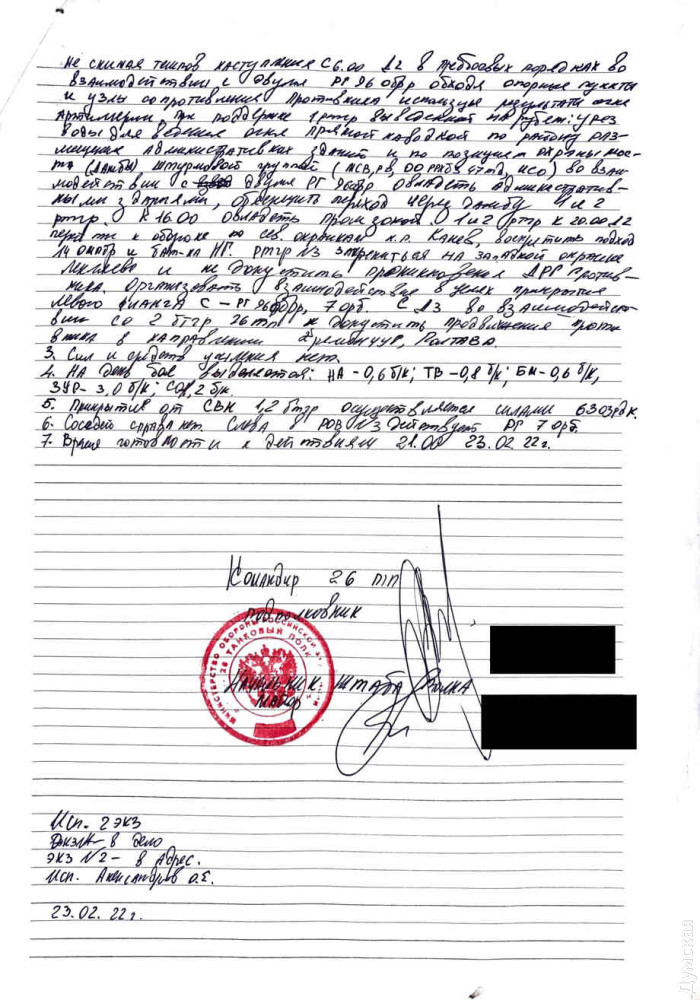 не снижая темпов наступления с 6.00 Д2 в предбоевых порядках во
взаимодействии с двумя РГ 96 обрр обходя опорные пункты
и узлы сопротивления противника используя результаты огня
артиллерии при поддержке 1 ртгр выведенной на рубеж: урез
воды для ведения огня прямой наводкой по району раз-
мещения административных зданий и по позициям охраны мос-
та (дамбы) штурмовой группой (
во взаи-
модействии с двумя РГ 96 обрр овладеть административ-
ными зданиями, обеспечить переход через дамбу 1 и 2
ртгр. К 16.00 овладеть промзоной. 1 и 2 ртгр к 20.00 Д2
перейти к обороне по сев. окраинам н.п. Канев, воспретить подход
14 омбр и бат-на НГ. ртгр №3 закрепиться на западной окраине
и не допустить проникновения ДРГ против-
ника. Организовать взаимодействие в целях прикрытия
левого фланга с - РГ 96 обрр, 7 орб. С Д3 во взаимодейст-
вии со 2 бтгр 26 тп не допустить продвижения проти-
вника в направлении Кременчуг, Полтава.
3. Сил и средств усиления нет.
4. На день боя выделяется: НА - 0,6 б/к; ТВ - 0,8 б/к; БМ - 0,6 б/к,
ЗУР - 3,0 б/к; СО 1,2 б/к.
5. Прикрытие от СВН 1,2 бтгр осуществляется силами 63 озрдн.
6. Соседей справа нет. Слева в РОВ №3 действует РГ 7 орб.
7. Время готовности к действиям 21.00 23.02.22г.
Командир 26 тп
подполковник
МИНИСТЕРСТВО ОБОРОНЫ РОССИЙСКОЙ
26 ТАНКОВЫЙ ПОЛК
Начальник штаба полка
майор
Исп. 2 экз
в дело
экз №2 - в адрес.
Исп. Александров О.Е.
23.02.22г.
Думская